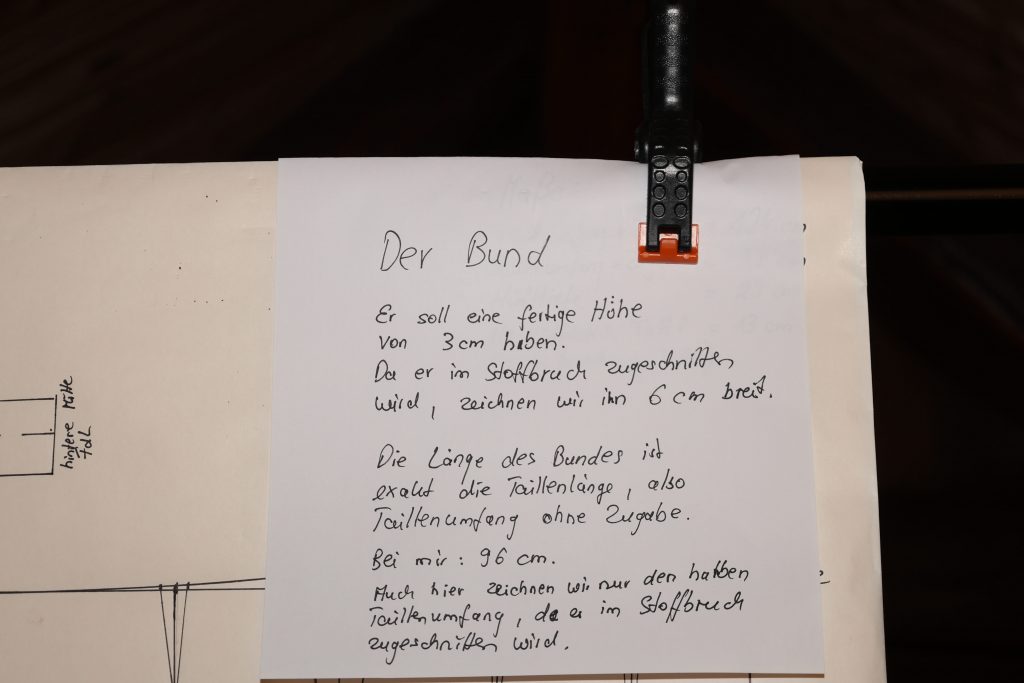 Der Bund
Er soll eine fertige Höhe
von 3 cm haben.
Da er im Stoffbruch zugeschnitten
wird, zeichnen wir ihn 6 cm breit.
Die Länge des Bundes ist
exakt die Taillenlänge, also
Taillenumfang ohne Zugabe.
Bei mir: 96 cm.
Auch hier zeichnen wir nur den halben
Taillenumfang, da er im Stoffbruch
zugeschnitten wird.
hintere Mitte
FdL